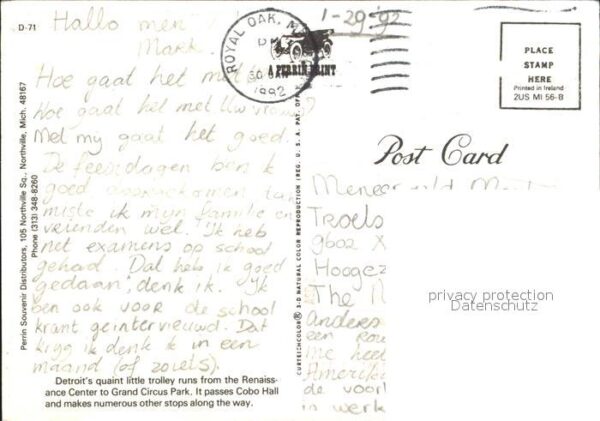 D-71
Hallo men
Mark.
Hoe gaat het met
Hoe gaat het met Uw vrouw?
Met my gaat het goed.
De feestdagen ben k
goed doorgekomen
miste ik mijn familie en
vrienden wel. Ik heb
net examens op school
gehad. Dat heb ik goed
gedaan, denk ik. Ik
ben ook voor de school
krant geinterviewd. Dat
krijg ik denk ik in een
maand (of zoiets).
Detroit's quaint little trolley runs from the Renaiss-
ance Center to Grand Circus Park. It passes Cobo Hall
and makes numerous other stops along the way.
Perrin Souvenir Distributors, 105 Northville Sq., Northville, Mich. 48167
Phone (313) 348-8260
CURTEICHCOLOR® 3-D NATURAL COLOR REPRODUCTION (REG. U.S.A. PAT. OFF
1-29-'92
ROYAL OAK, M
1992
A PERRIN PRINT
PLACE
STAMP
HERE
Printed in Ireland
2US MI 56-B
Post Card
Meneer
Troels
9602 X
Hoogez
The N
Anders
een
me heel
Amerika
de voor
in werk
privacy protection
Datenschutz